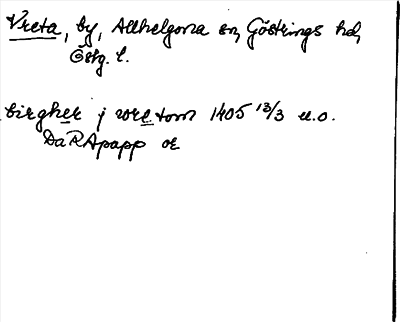 Vreta, by, Allhelgona sn, Göstrings hd,
Östg. l.
birgher j wretom 1405 13/3 u.o.
DaRApapp or